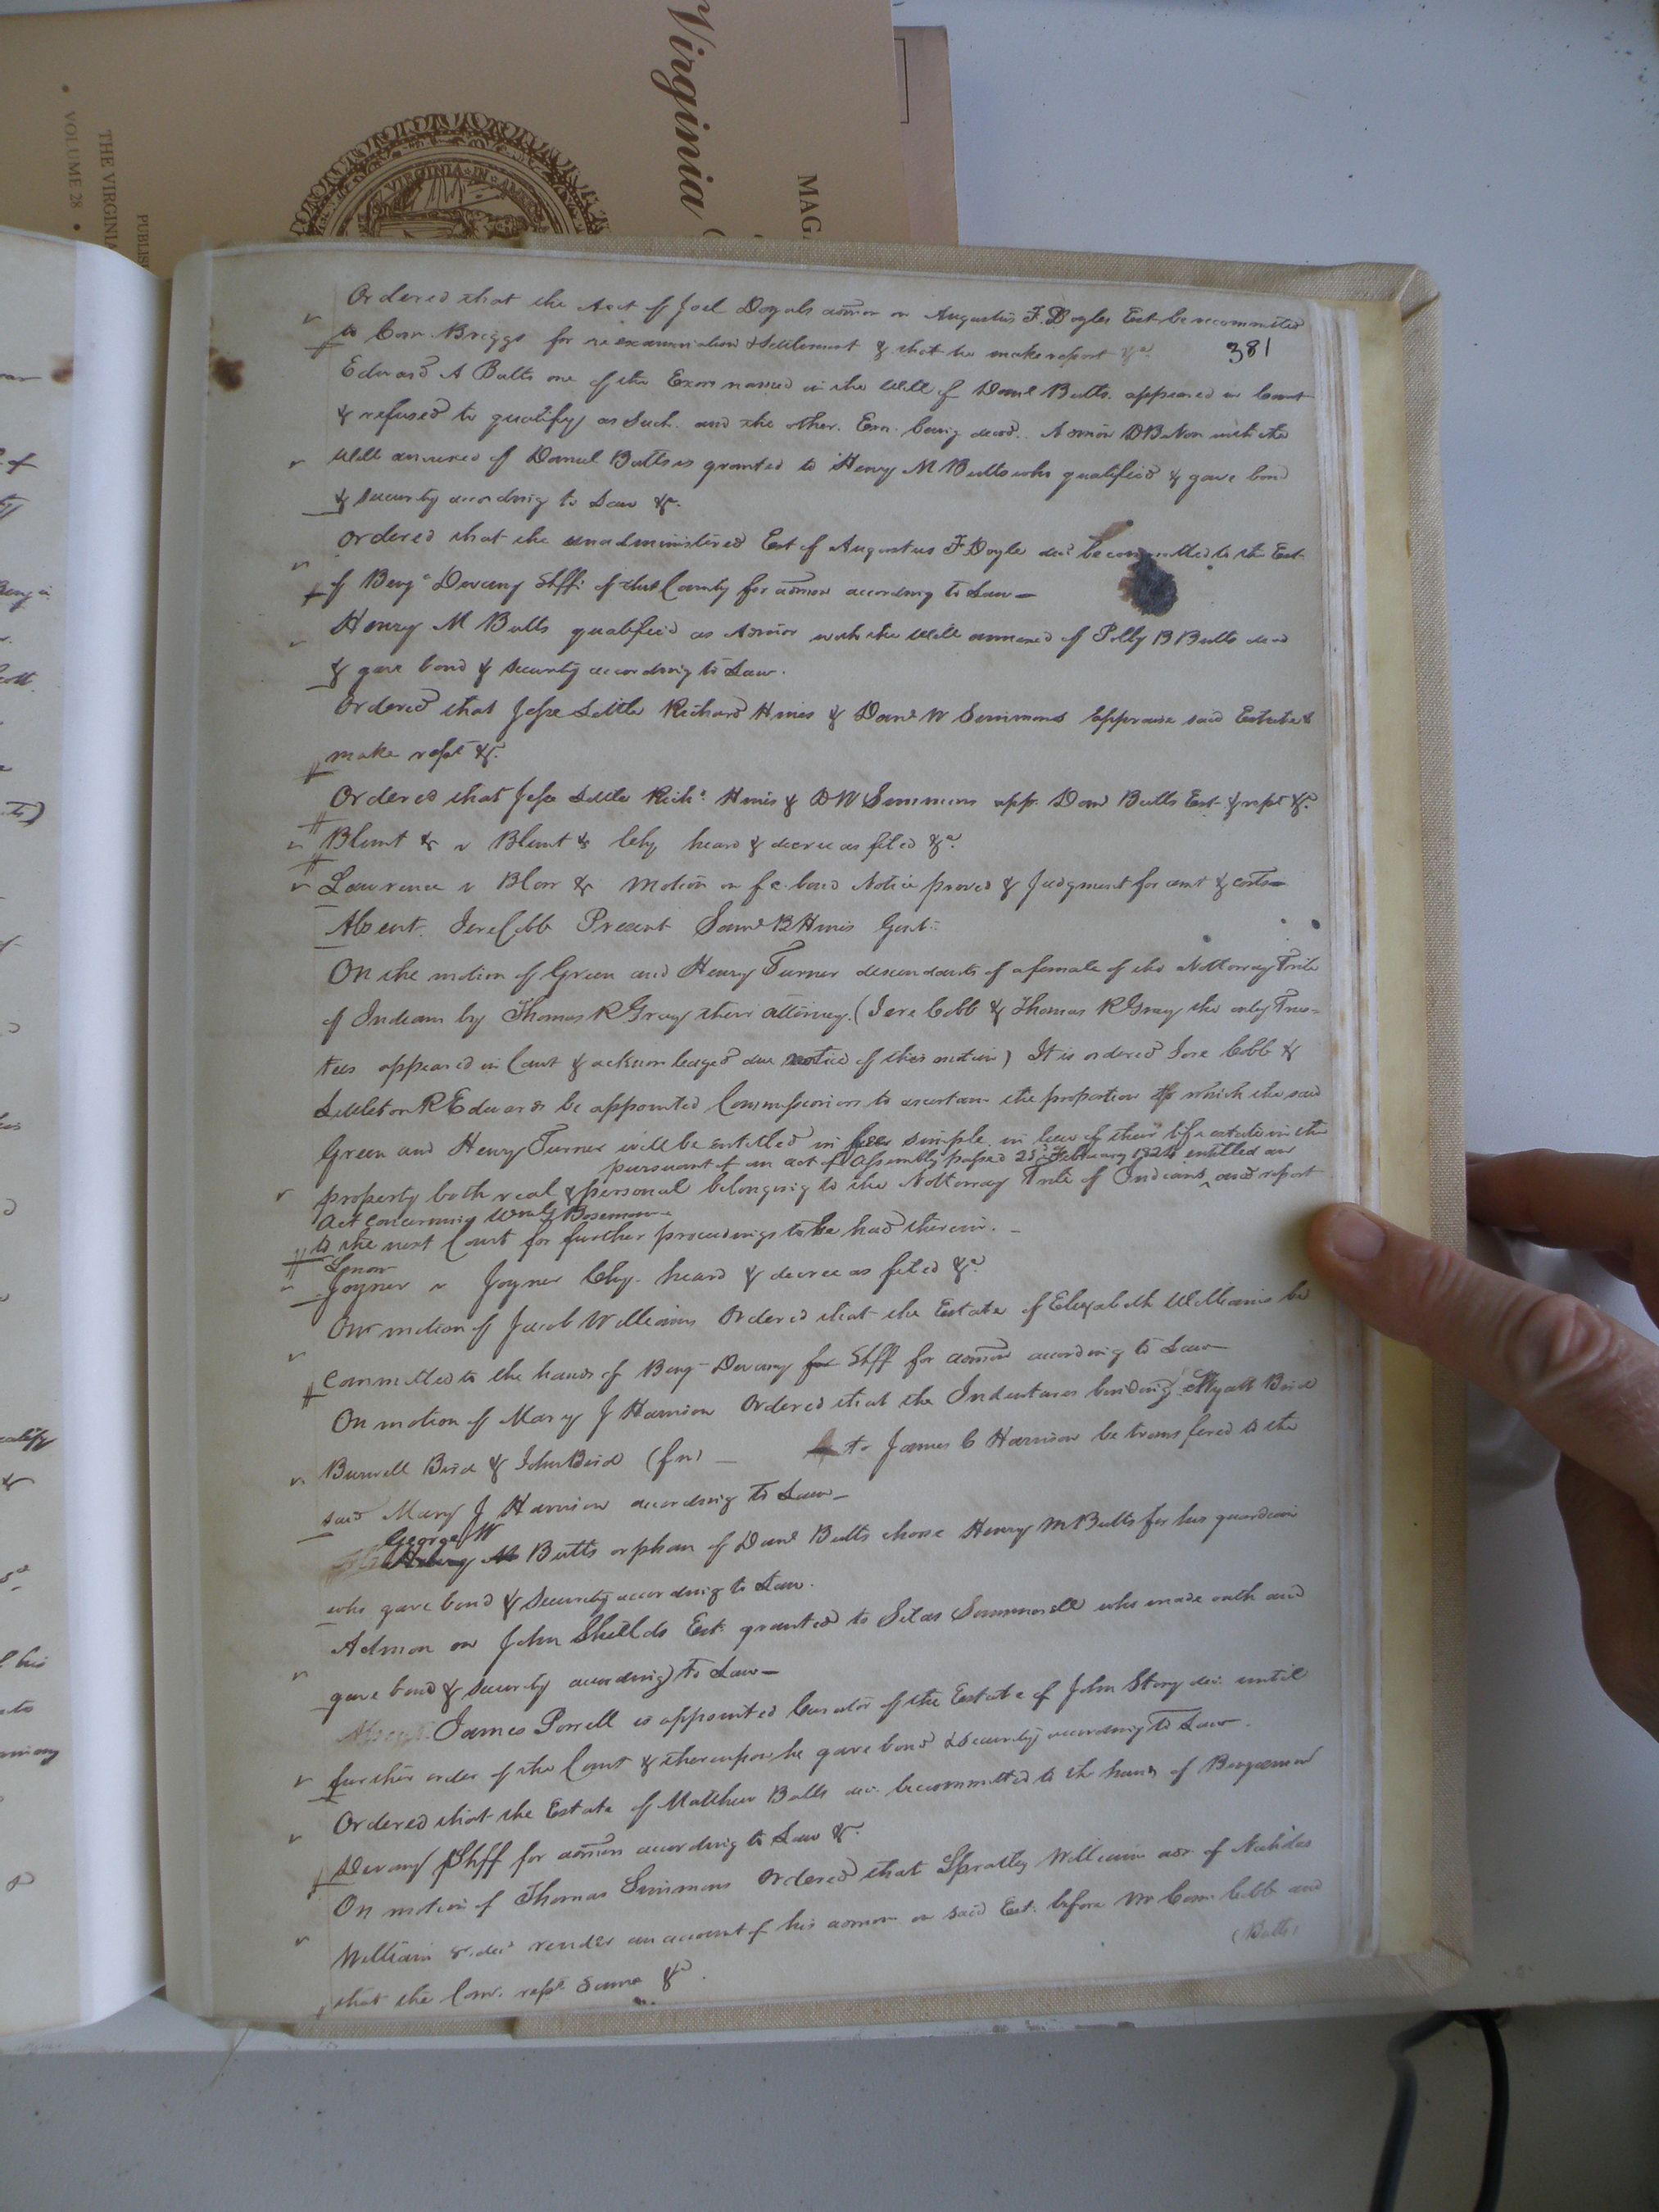 Virginia
MAG
THE VIRGINIA
VOLUME 28
PUBLIS
VIRGINIA IN
381
Ordered that the Acct of Joel Doyals admor on Augustus F. Doyles Est. be recommitted
to Com. Briggs for reexamination & Settlement & that he make report &c
Edward A Butts one of the Exors named in the Will of Danl Butts appeared in Court
& refused to qualify as Such and the other Exr. being decd. Admor DB Non with the
Will annexed of Daniel Butts is granted to Henry M Butts who qualified & gave bond
& security according to Law &c.
Ordered that the unadministered Est of Augustus F. Doyle decd be committed to the
of Benj Devany Shff. of this County for admon according to Law
Henry M Butts qualified as Admor with the Will annexed of Polly B Butts decd
& gave bond & security according to Law.
Ordered that Jesse Little Richard Hines & Danl W Simmons appraise said Estate &
make rept &c.
Ordered that Jesse Little Richd Hines & D W Simmons app. Danl Butts Est & rept &c.
Blunt & v Blunt & Chy heard & decree as filed &c.
Lawrence v Blow & Motion on bond Notice proved & Judgment for amt & costs
Absent Jere Cobb Present Saml B Hines Gent.
On the motion of Green and Henry Turner descendants of a female of the Nottoway Tribe
of Indians by Thomas R Gray their attorney. (Jere Cobb & Thomas R Gray the only Trus-
tees appeared in Court & acknowledged due notice of this motion) It is ordered Jere Cobb &
Littleton R Edwards be appointed Commissioners to ascertain the proportion to which the said
Green and Henry Turner will be entitled in fee simple in lieu of their life estate in the
pursuant of an act of Assembly passed 25 February 1824 entitled an
property both real & personal belonging to the Nottoway Tribe of Indians and report
act concerning Bozeman
to the next Court for further proceedings to be had therein.
Joyner v Joyner Chy. heard & decree as filed &c
On motion of Jacob Williams Ordered that the Estate of Elizabeth Williams be
committed to the hands of Benj Devany Shff for admon according to Law
On motion of Mary J Harrison Ordered that the Indentures binding Wyatt Bird
Burwell Bird & John Bird (fn) to James C Harrison be transfered to the
said Mary J Harrison according to Law
George W
Henry M Butts orphan of Danl Butts chose Henry M Butts for his guardian
who gave bond & security according to Law.
Admon on John Shields Est granted to Silas Summerell who made oath and
gave bond & security according to Law
James Porrell is appointed Curator of the Estate of John Story dec. until
further order of the Court & thereupon he gave bond & security according to Law.
Ordered that the Estate of Matthew Butts dec. be committed to the hands of Benjamin
Devany Shff for admon according to Law &c.
On motion of Thomas Simmons Ordered that Spratley William adr. of Nicholas
William decd render an account of his admon on said Est. before Mr Com Cobb and
that the Com. rept Same &c.
(Butts)